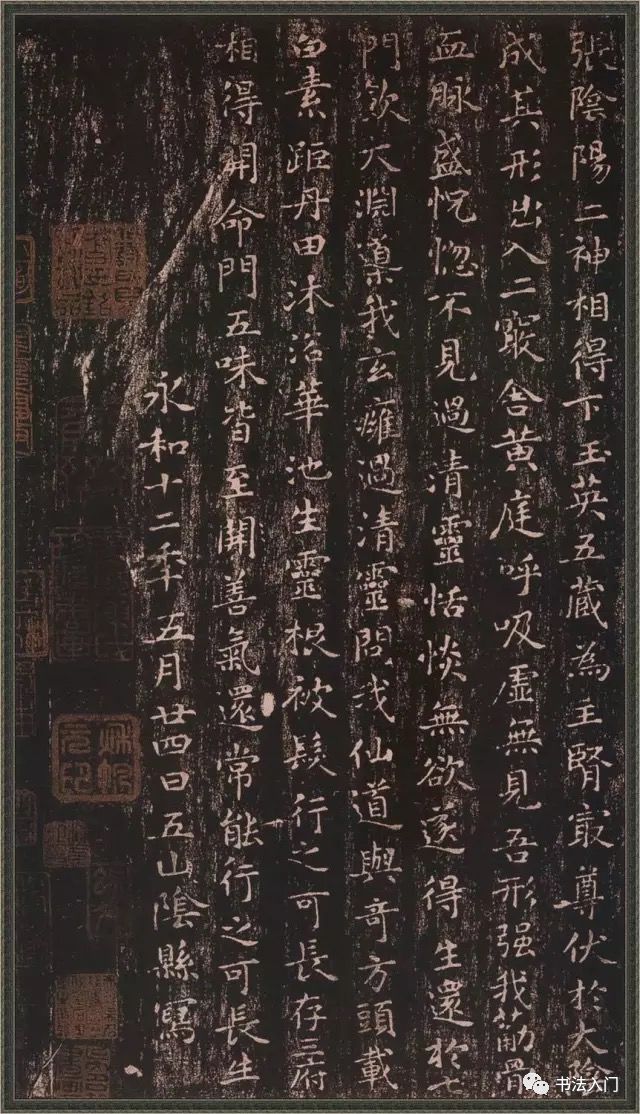 張陰陽二神相得下玉英五藏為主腎冣尊伏於大陰
成其形出入二竅舍黃庭呼吸虛無見吾形强我筋骨
血脉盛怳惚不見過清靈恬惔無欲遂得生還於七
門飲大淵我玄癰過清靈問我仙道與奇方頭載
白素距丹田沐浴華池生靈根被髮行之可長存三府
相得開命門五味皆至開善氣還常能行之可長生
永和十二秊五月廿四日五山陰縣寫
书法入门